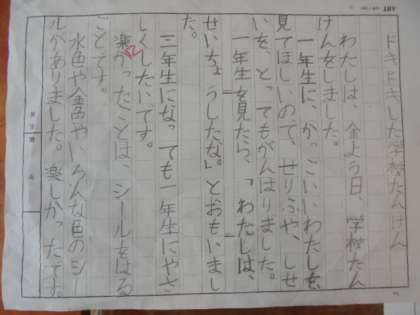 ドキドキした学校たんけん
わたしは、金よう日、学校たん
けんをしました。
一年生に、かっこいいわたしを、
見てほしいので、せりふや、しせ
いを、とってもがんばりました。
一年生を見たら、「わたしは、
せいちょうしたな」。とおもいまし
た。
三年生になっても一年生にやさ
しくしたいです。
楽かったことは、シールをはる
ことです。
水色や金色やいろんな色のシー
ルがありました。楽しかったです。